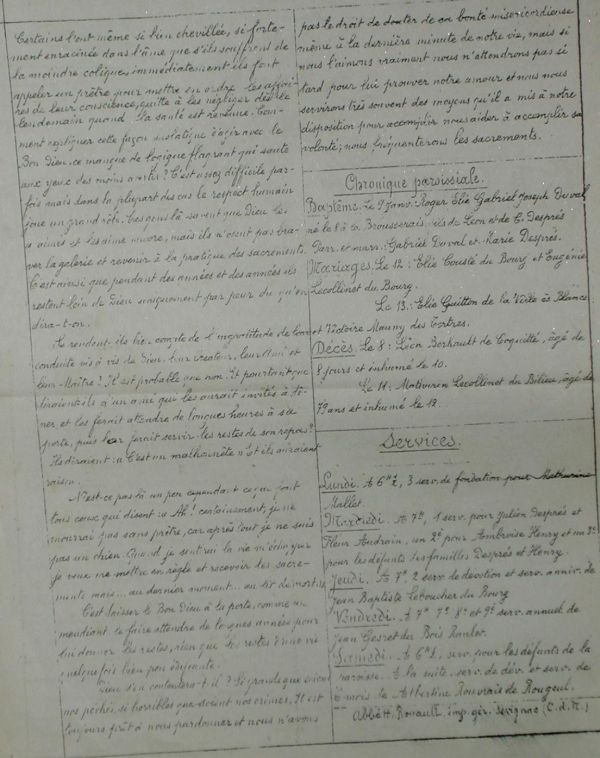 Certains l'ont même si bien chevillée, si forte-
ment enracinée dans l'âme que s'ils souffrent de
la moindre colique, immédiatement ils font
appeler un prêtre pour mettre en ordre les affai-
res de leur conscience, quitte à les négliger dès le
lendemain quand la santé est revenue. Com-
ment expliquer cette façon d'agir avec le
Bon Dieu, ce manque de logique flagrant qui saute
aux yeux des moins avertis? C'est assez difficile par-
fois mais dans la plupart des cas le respect humain
joue un grand rôle. Ces gens là savent que Dieu les
a aimés et les aime encore, mais ils n'osent pas bra-
ver la galerie et revenir à la pratique des sacrements.
C'est ainsi que pendant des années et des années ils
restent loin de Dieu uniquement par peur du qu'en
dira-t-on.
Se rendent-ils bien compte de l'ingratitude de leur
conduite vis à vis de Dieu, leur créateur, leur Ami et
leur Maître? Il est probable que non. Et pourtant que
diraient-ils d'un ami qui les aurait invités à dî-
ner et les ferait attendre de longues heures à sa
porte, puis leur ferait servir les restes de son repas?
Ils diraient: C'est un malhonnête et ils auraient
raison.
N'est-ce pas là un peu cependant ce que font
tous ceux qui disent: Ah! certainement, je ne
mourrai pas sans prêtre, car après tout je ne suis
pas un chien. Quand je sentirai la vie m'échapper
je veux me mettre en règle et recevoir les sacre-
ments mais... au dernier moment... au lit de mort.
C'est laisser le Bon Dieu à la porte, comme un
mendiant, le faire attendre de longues années pour
lui donner les restes, rien que les restes d'une vie
quelquefois bien peu édifiante.
Dieu s'en contentera-t-il? Si grands que soient
nos péchés, si horribles que soient nos crimes, Il est
toujours prêt à nous pardonner et nous n'avons
pas le droit de douter de sa bonté miséricordieuse
même à la dernière minute de notre vie, mais si
nous l'aimons vraiment nous n'attendrons pas si
tard pour lui prouver notre amour et nous nous
servirons très souvent des moyens qu'il a mis à notre
disposition pour nous aider à accomplir sa
volonté; nous fréquenterons les sacrements.
Chronique paroissiale.
Baptême. Le 9 Janv. Roger Elie Gabriel Joseph Duval
né le 8 à Brousserais, fils de Léon et de C. Després
Parr. et marr. Gabriel Duval et Marie Després.
Mariages. Le 12: Elie Cousté du Bourg et Eugénie
Lecollinet du Bourg.
Le 13: Elie Guitton de la Ville ès Blancs
et Victoire Mauny des Tertres.
Décès. Le 8: Léon Berhault de Coquillé, âgé de
8 jours et inhumé le 10.
Le 11: Mathurin Lecollinet du Bilieu, âgé de
79 ans et inhumé le 12.
Services.
Lundi. A 6h ½, 3 serv. de fondation pour Mathurine
Mallet.
Mercredi. A 7h, 1 serv. pour Julien Després et
Fleur Audrain, un 2e pour Ambroise Henry et un 3e
pour les défunts des familles Després et Henry.
Jeudi. A 7h 2 serv. de dévotion et serv. anniv. de
Jean Baptiste Leboucher du Bourg
Vendredi. A 7h 8h et 9h serv. annuel de
Jean Gesret du Bois
Samedi. A 6h ½, serv. pour les défunts de la
paroisse. A la suite, serv. de dév. et serv. de
6 mois de Albertine Rouvrais de Rougeul.
Abbé H. Rouault, imp. gér. Sévignac (C.d.N.)